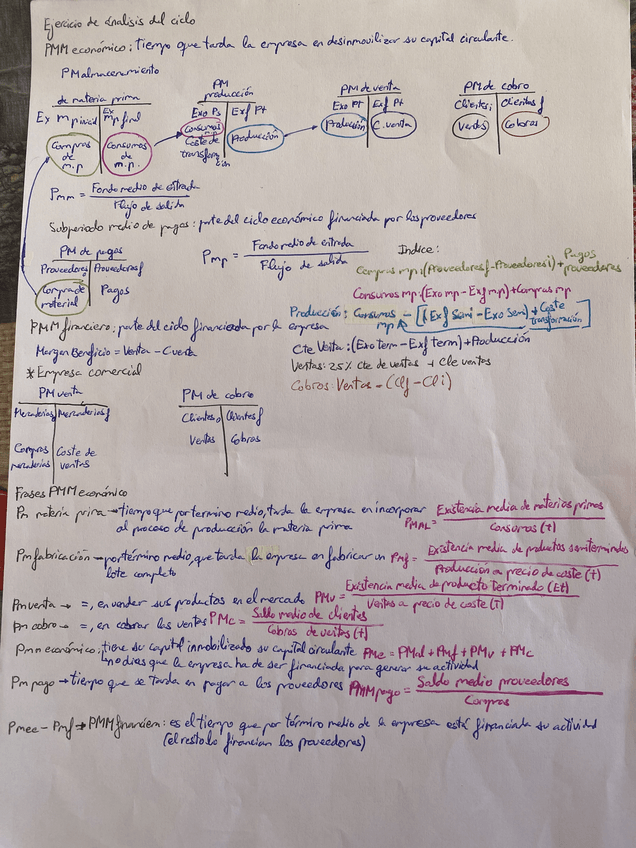 Ejercicio de Análisis del ciclo
PMM económico: tiempo que tarda la empresa en desinmovilizar su capital circulante.
PMalmacenamiento
de materia prima
Ex mp inicial
Ex mp final
Compras de m.p.
Consumos de m.p.
PM producción
Exo Ps
Exf Pt
Consumos
Coste de transformación
Producción
PM de venta
Exo Pt
Exf Pt
Producción
C. venta
PM de cobro
Clientes i
Clientes f
Ventas
Cobros
Pmm = Fondo medio de entrada
Flujo de salida
Subperiodo medio de pagos: parte del ciclo económico financiada por los proveedores
PM de pagos
Proveedores
Proveedores f
Compra de material
Pagos
Pmp = Fondo medio de entrada
Flujo de salida
Indice:
Compras mp: (Proveedores f - Proveedores i) + Pagos proveedores
Consumos mp: (Exo mp - Exf mp) + Compras mp
Producción: Consumos mp - [(Exf Semi - Exo Semi) + Coste transformación]
PMM financiero: parte del ciclo financiada por la empresa
Margen Beneficio = Venta - Cuesta
Cte Venta: (Exo term - Exf term) + Producción
Ventas: 25% cte de ventas + Cte ventas
Cobros: Ventas - (Clf - Cli)
* Empresa comercial
PM venta
Mercaderías
Mercaderías f
Compras mercaderías
Coste de ventas
PM de cobro
Clientes o
Clientes f
Ventas
Cobros
Frases PMM económico
Pm materia prima → tiempo que por termino medio, tarda la empresa en incorporar al proceso de producción la materia prima
PMAL = Existencia media de materias primas
Consumos (t)
Pm fabricación → por término medio, que tarda la empresa en fabricar un lote completo
PMf = Existencia media de productos semiterminados
Producción a precio de coste (t)
Pm venta → =, en vender sus productos en el mercado PMv = Existencia media de producto Terminado (Et)
Ventas a precio de coste (T)
Pm cobro → =, en cobrar las ventas PMc = Saldo medio de clientes
Cobros de ventas (t)
Pmm económico: tiene su capital inmobilizado su capital circulante PMe = PMal + PMf + PMv + PMc
↳ no dias que la empresa ha de ser financiada para generar su actividad
Pm pago → tiempo que se tarda en pagar a los proveedores PMM pago = Saldo medio proveedores
Compras
Pmee - Pmf → PMM financiero: es el tiempo que por término medio de la empresa está financiada su actividad
(el resto lo financian los proveedores)